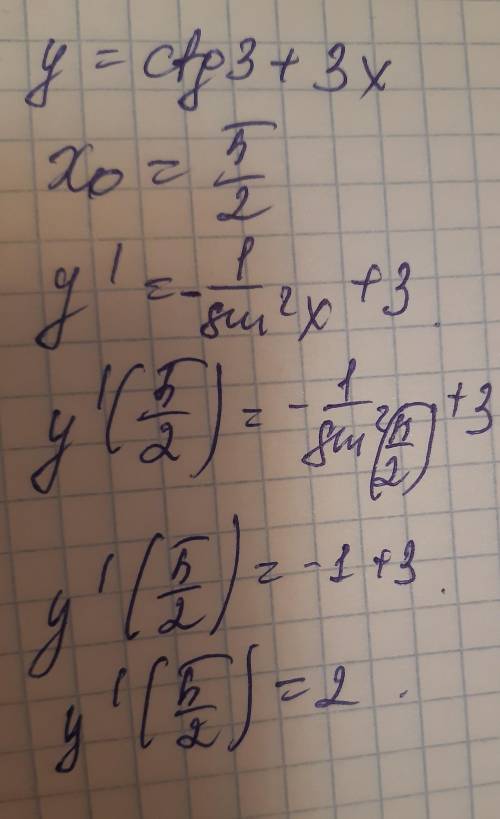 y = ctg3 + 3x
x₀ = π/2
y' = -1/sin²x + 3.
y'(π/2) = -1/sin²(π/2) + 3
y'(π/2) = -1 + 3.
y'(π/2) = 2.